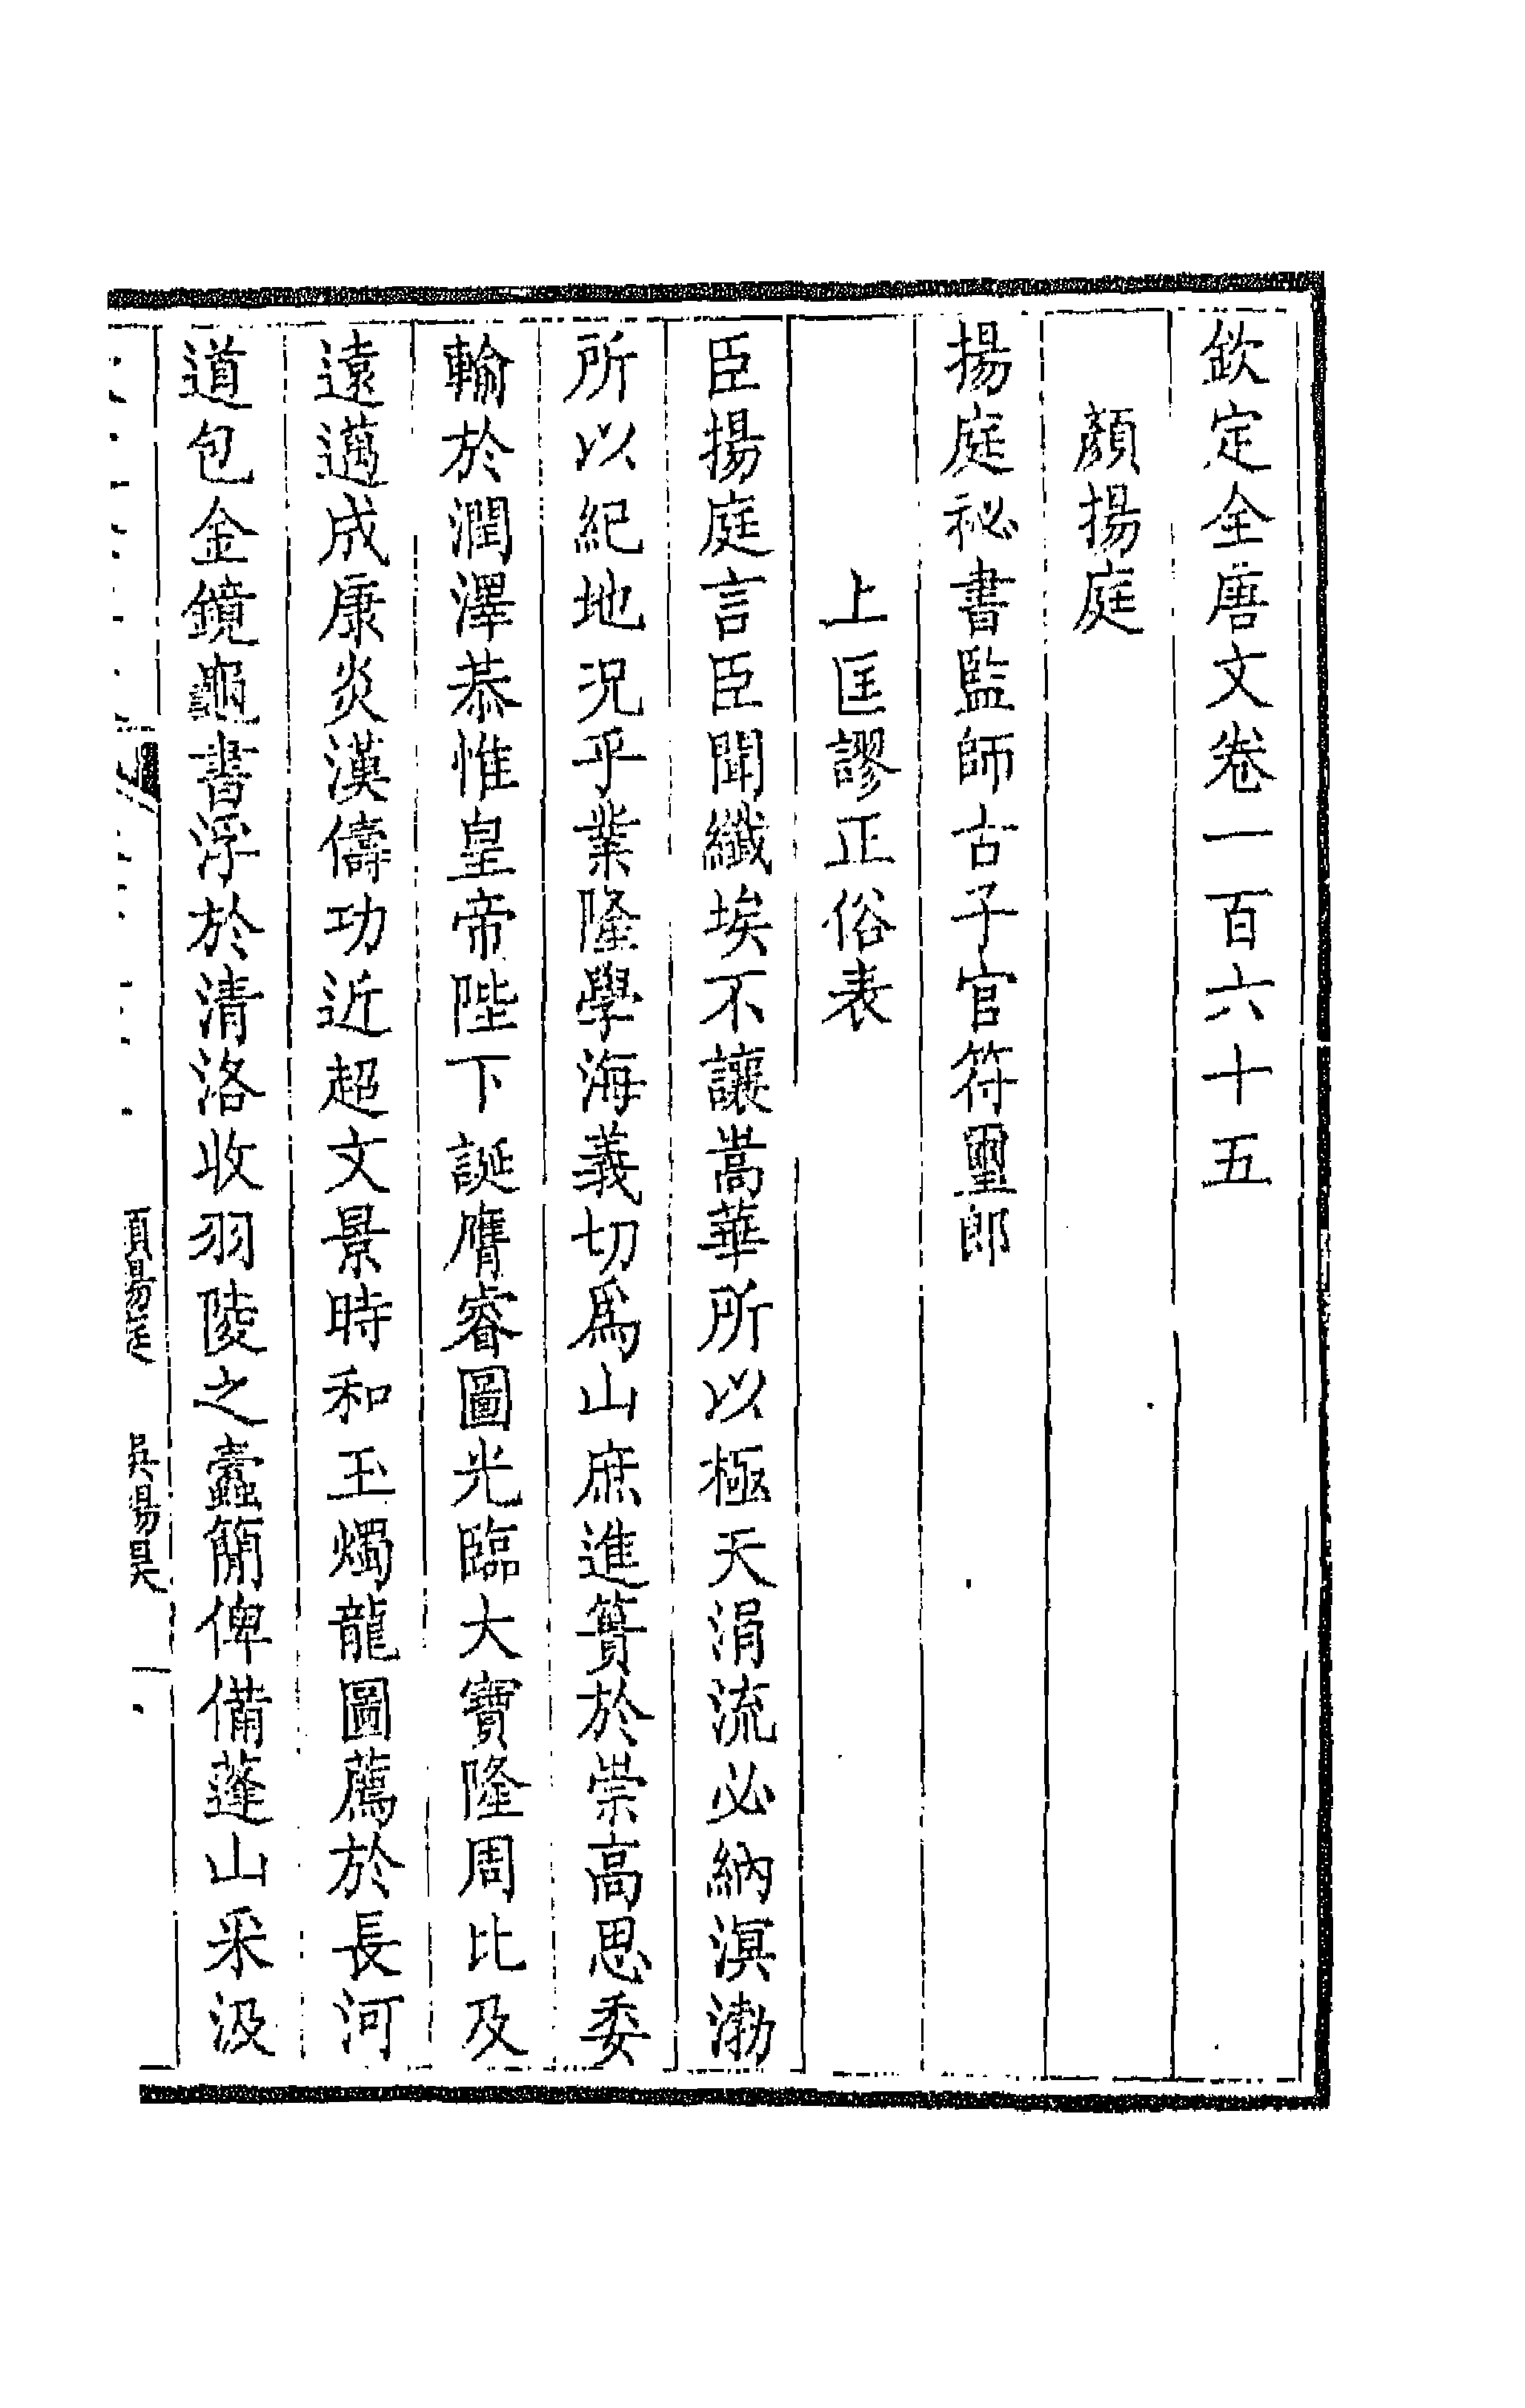 欽定全唐文卷一百六十五
顏揚庭
揚庭祕書監師古子官符璽郎
上匡謬正俗表
臣揚庭言臣聞纖埃不讓嵩華所以極天涓流必納溟渤
所以紀地況乎業隆學海義切爲山庶進簣於崇高思委
輸於潤澤恭惟皇帝陛下誕膺睿圖光臨大寶隆周比及
遠邁成康炎漢儔功近超文景時和玉燭龍圖薦於長河
道包金鏡龜書浮於清洛收羽陵之蠹簡俾備蓬山采汲
吳揚昊 一